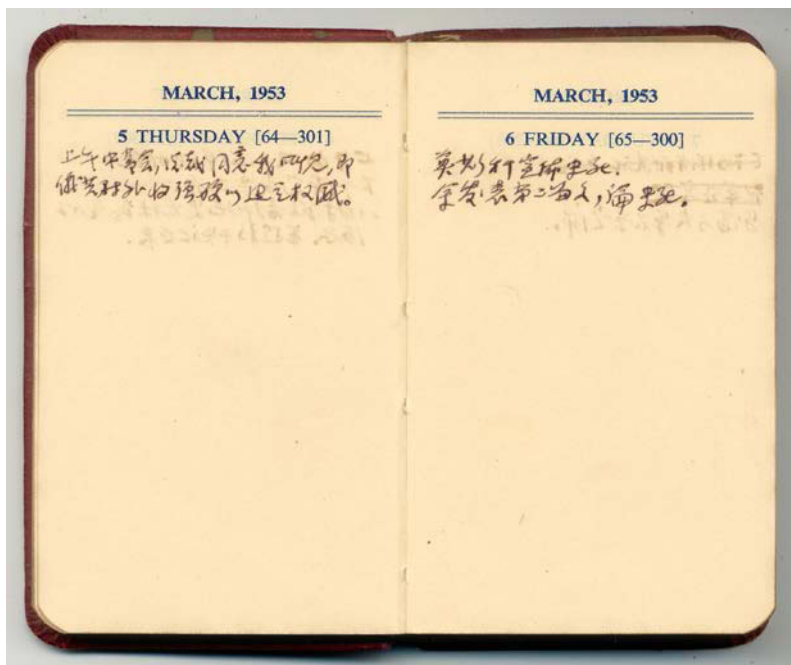 MARCH, 1953
5 THURSDAY [64—301]
上午中常会，总裁同意我的看法，即
俄共对外将强硬以建立权威。
MARCH, 1953
6 FRIDAY [65—300]
莫斯科宣佈史死．
余发表第二篇文，論史死．